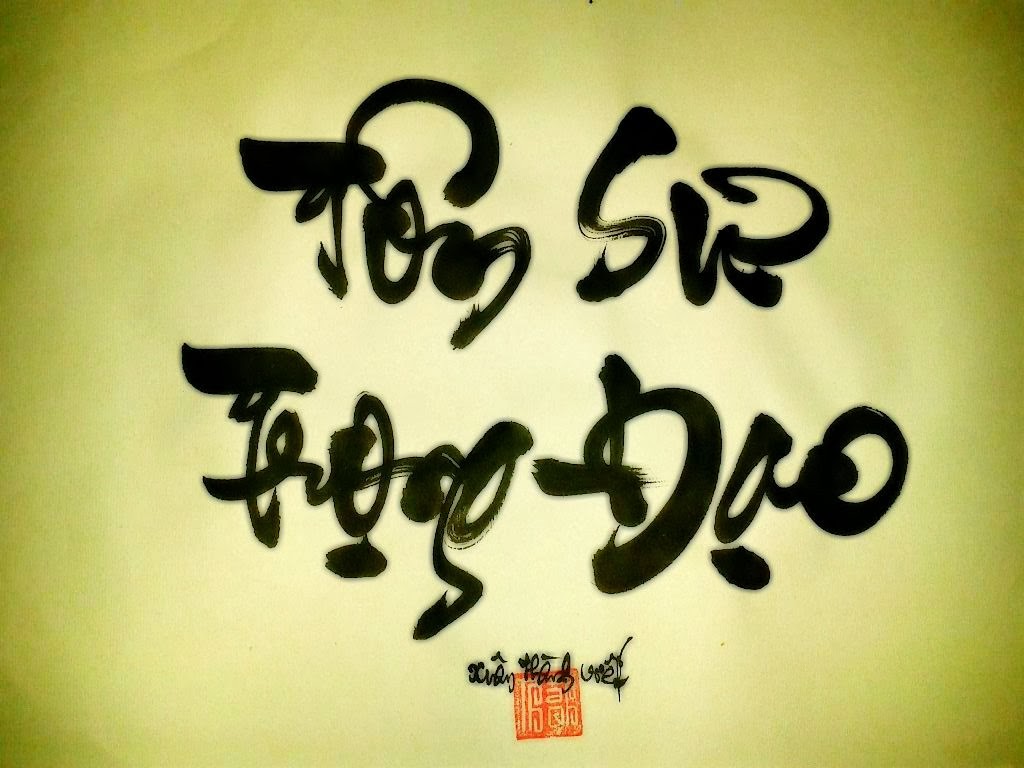 Tôn Sư
Trọng Đạo
Xuân Thành viết